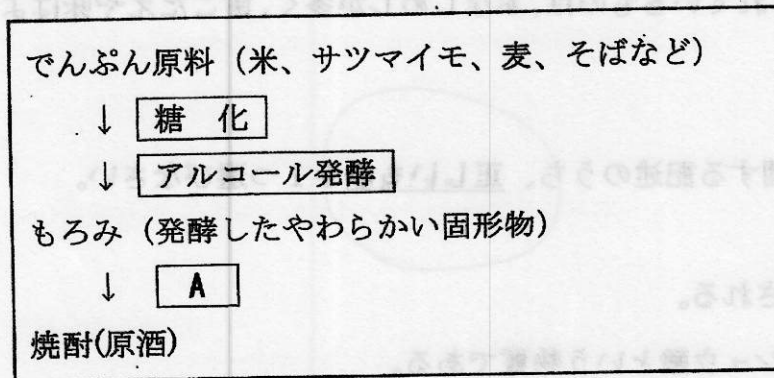 でんぷん原料（米、サツマイモ、麦、そばなど）
↓ 糖　化
↓ アルコール発酵
もろみ（発酵したやわらかい固形物）
↓ A
焼酎(原酒)